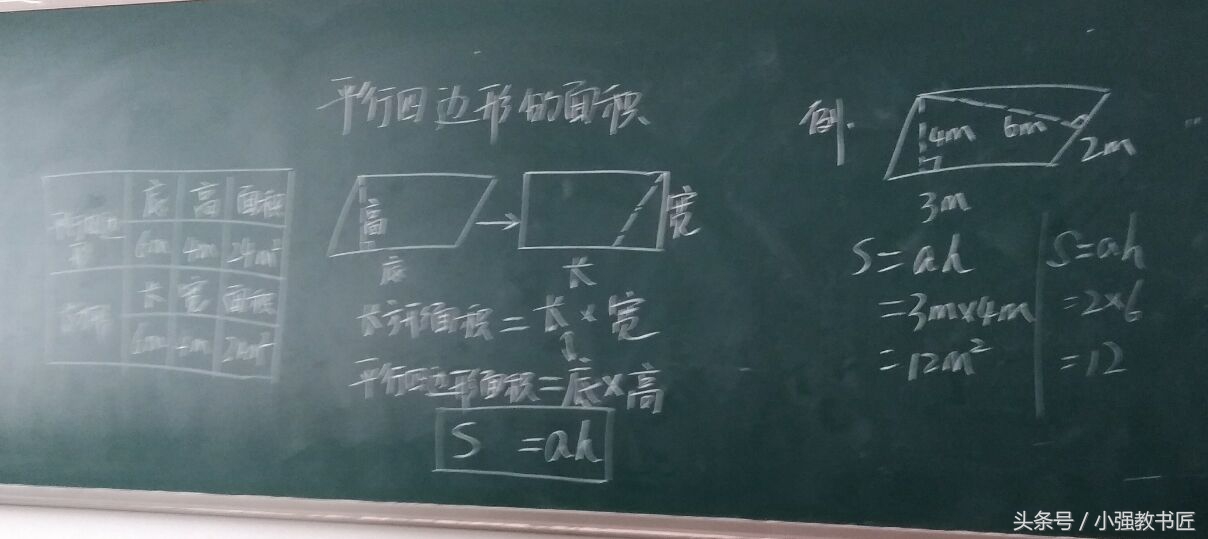 平行四边形的面积
底 高 面积
平行四边形 6m 4m 24m²
长 宽 面积
6m
高
底
长
宽
长方形面积=长×宽
平行四边形面积=底×高
S =ah
例.
4m 6m
2m
3m
S=ah
=3m×4m
=12m²
S=ah
=2×6
=12
头条号 / 小强教书匠